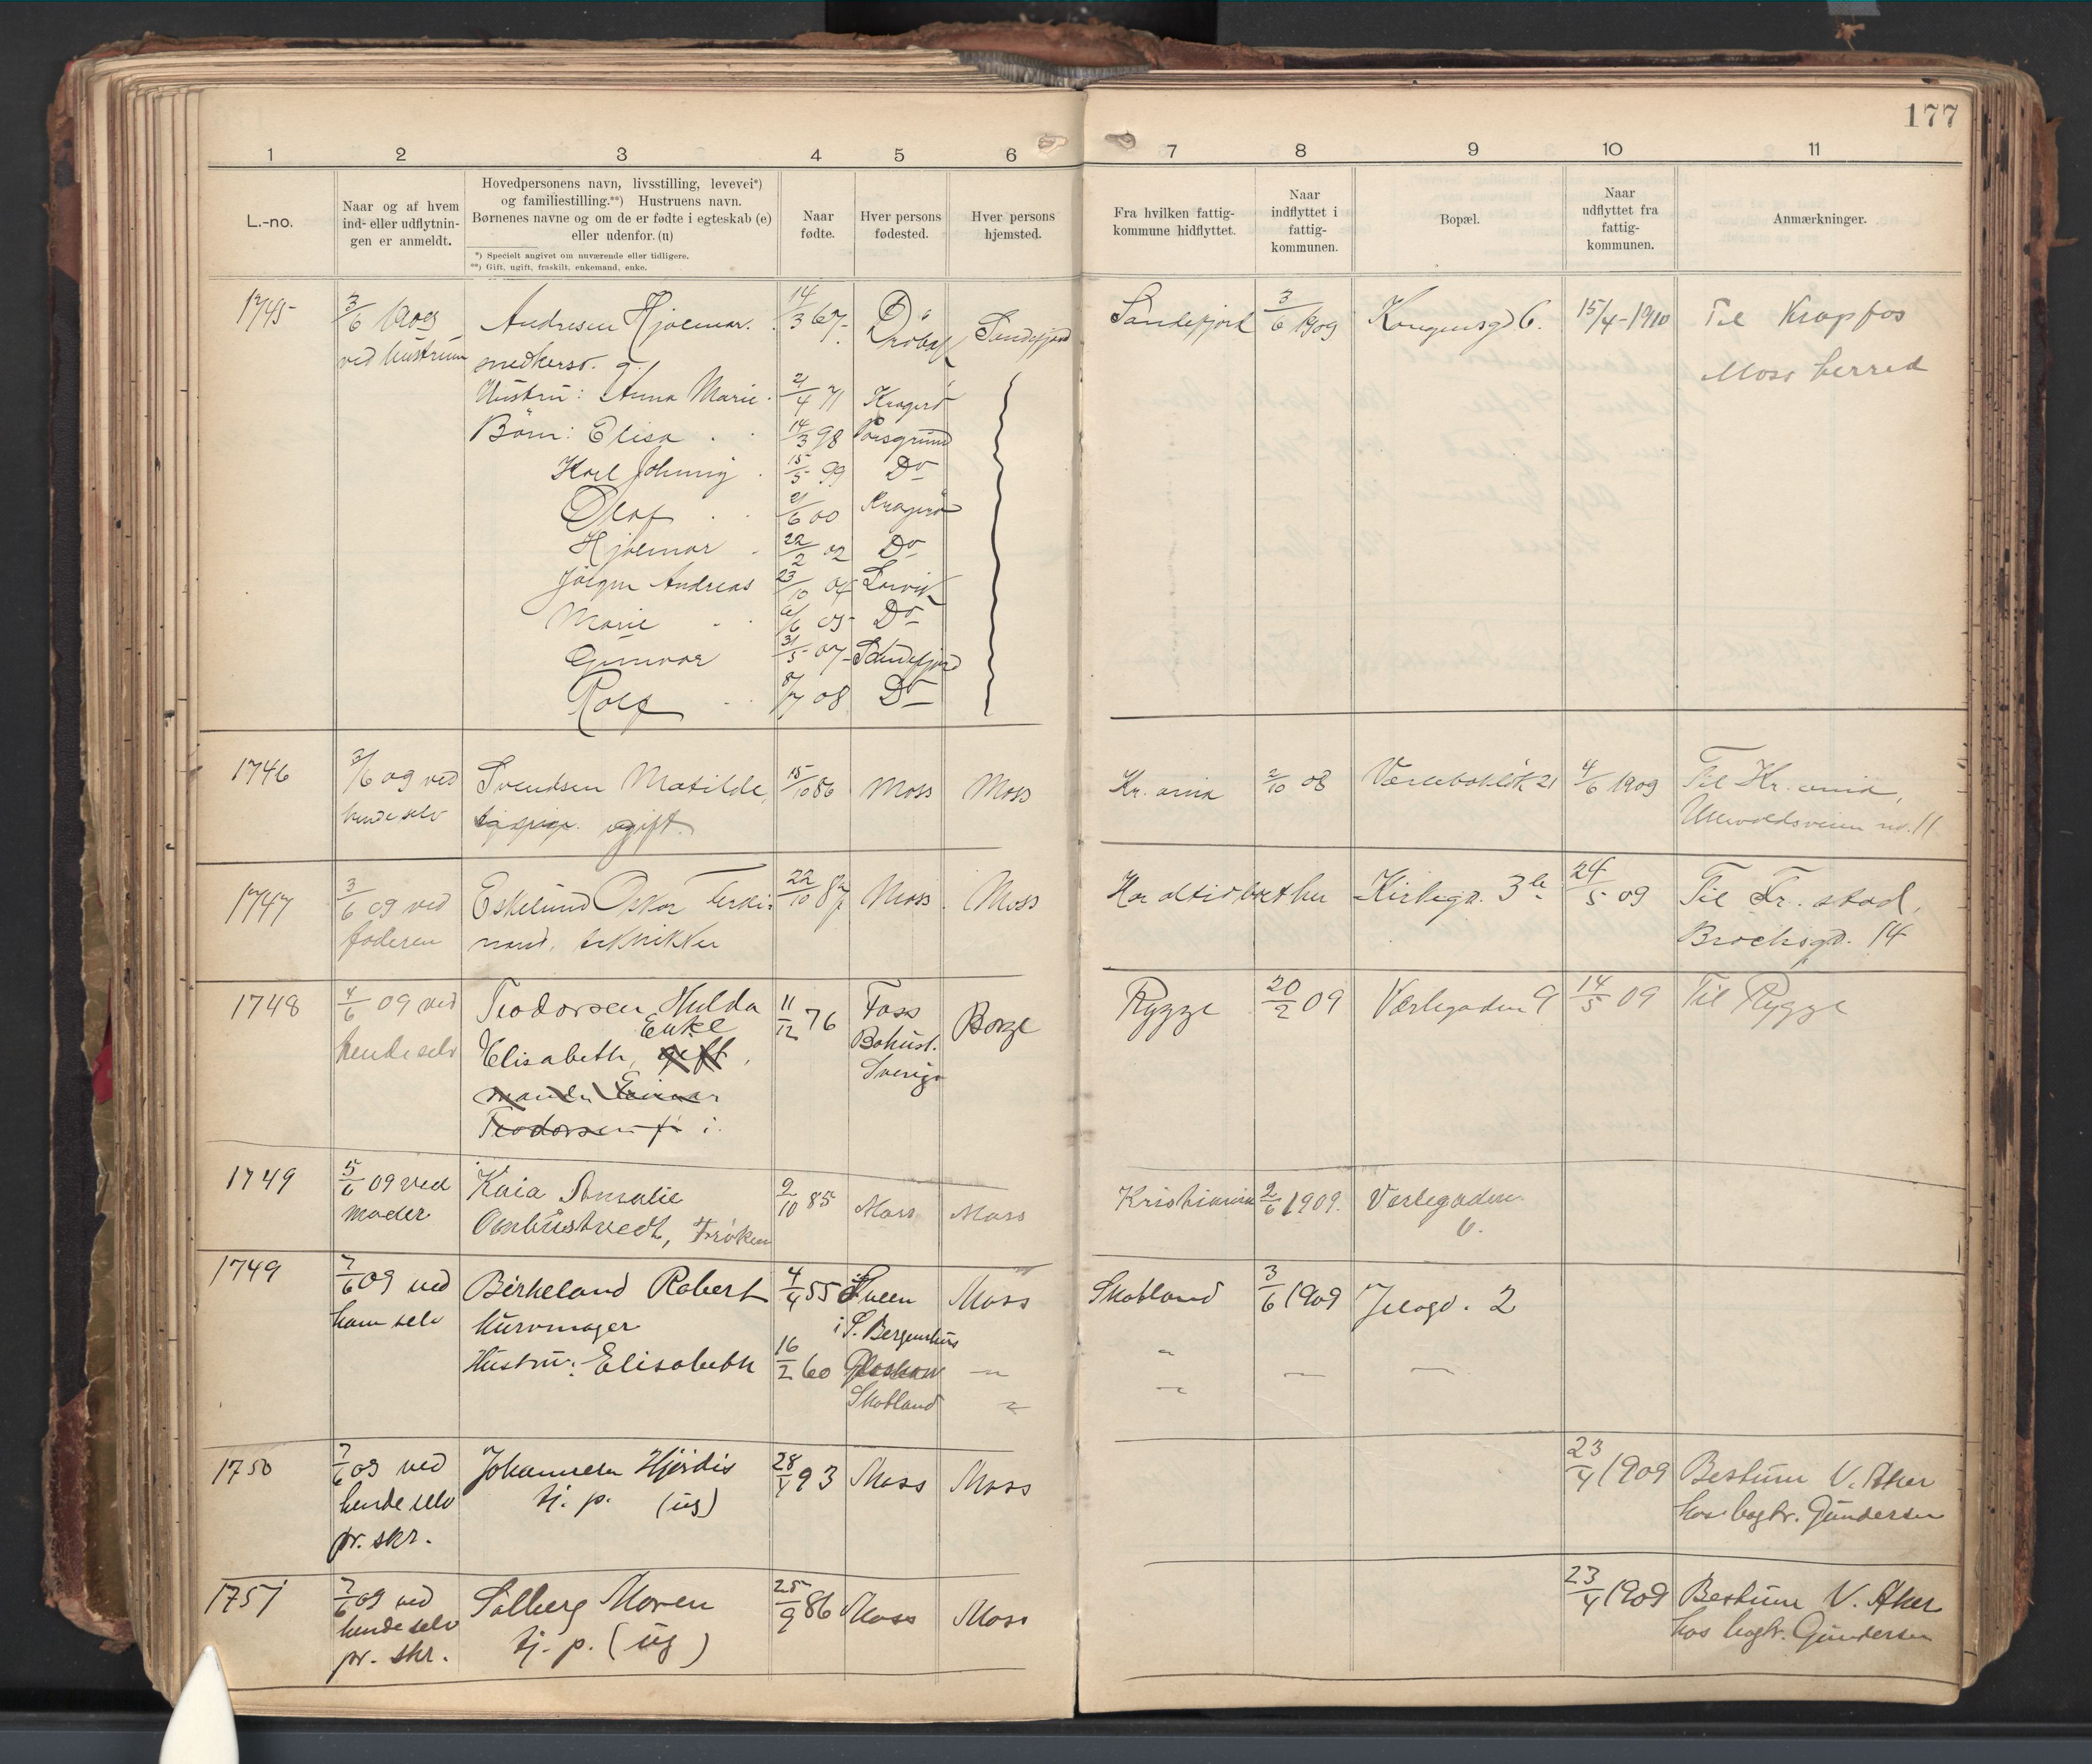 177
1 2 3 4 5 6 7 8 9 10 11
L.-no.
Naar og af hvem
ind- eller udflytnin-
gen er anmeldt.
Hovedpersonens navn, livsstilling, levevei*)
og familiestilling.**) Hustruens navn.
Børnenes navne og om de er fødte i egteskab (e)
eller udenfor. (u)
*) Specielt angivet om nuværende eller tidligere.
**) Gift, ugift, fraskilt, enkemand, enke.
Naar
fødte.
Hver persons
fødested.
Hver persons
hjemsted.
Fra hvilken fattig-
kommune hidflyttet.
Naar
indflyttet i
fattig-
kommunen.
Bopæl.
Naar
udflyttet fra
fattig-
kommunen.
Anmærkninger.
1745 3/6 1909 Andresen Hjalmar. 14/3 67 Drøbak Sandefjord Sandefjord 3/6 1909 Kongensgd 6. 15/4-1910 Til Krapfos
ved hustruen snedkersv. g. Moss herred
Hustru: Anna Marie 2/4 71 Kragerø
Børn: Elisa 14/3 98 Porsgrund
Karl Johnny 15/5 99 Do
Olaf 2/6 00 Kragerø
Hjalmar 22/2 02 Do
Jørgen Andreas 23/10 04 Larvik
Marie 6/6 05 Do
Gunvor 31/5 07 Sandefjord
Rolf 8/7 08 Do
1746 3/6 09 ved Svendsen Matilde, 15/10 86 Moss Moss Kr.ania 2/10 08 21 4/6 1909 Til Kr.ania,
hende selv ugift. Ullevoldsveien no. 11
1747 3/6 09 ved Eskelund Oskar Ferdi- 22/10 87 Moss Moss Har altid boet her Kirkegd. 3 24/5 09 Til Fr.stad,
faderen nand, tekniker Brochsgd. 14
1748 4/6 09 ved Teodorsen Hulda 11/12 76 Foss Borge Rygge 20/2 09 Værlegaden 9 14/5 09 Til Rygge
Enke
hende selv Elisabeth, gift, Bohusl.
manden Einar Sverige
Teodorsen i
1749 5/6 09 ved Kaia Amalie 9/10 85 Moss Moss Kristiania 2/6 1909. Værlegaden
moder Ombustvedt, Frøken 6.
1749 7/6 09 ved Birkeland Robert 4/4 55 Moss Skotland 3/6 1909 Jeløgd. 2
ham selv kurvmager i S. Bergenhus
Hustru: Elisabeth 16/2 60 – – – –
Skotland
1750 7/6 09 ved Johannesen Hjørdis 28/4 93 Moss Moss 23/4 1909 Bestum V. Aker
hende selv tj. p. (ug) hos bogtr. Gundersen
pr. skr.
1751 7/6 09 ved Solberg Maren 25/9 86 Moss Moss 23/4 1909 Bestum V. Aker
hende selv tj. p. (ug) hos bogtr. Gundersen
pr. skr.